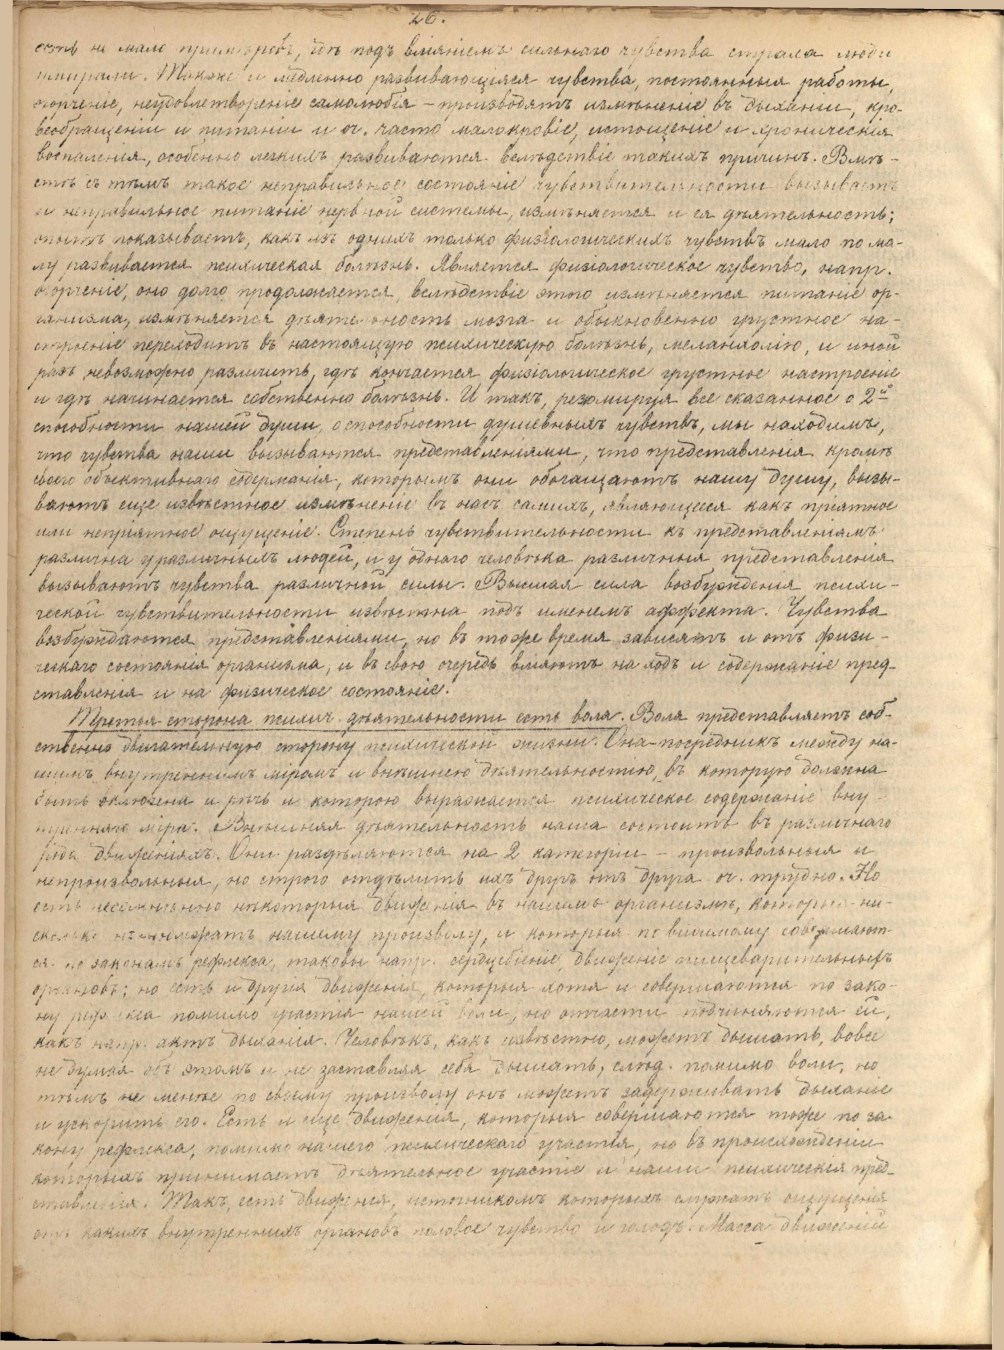 26.
есть не мало примѣровъ, гдѣ подъ вліяніемъ сильнаго чувства страха люди
умирали. Также и медленно развивающіяся чувства, постоянныя работы,
огорченіе, неудовлетвореніе самолюбія – производятъ измѣненіе въ дыханіи, кро-
вообращеніи и питаніи и оч. часто малокровіе, истощеніе и хроническія
воспаленія, особенно легкихъ развиваются вслѣдствіе такихъ причинъ. Вмѣ-
стѣ съ тѣмъ такое неправильное состояніе чувствительности вызываетъ
и неправильное питаніе нервной системы, измѣняется и ея дѣятельность;
опытъ показываетъ, какъ изъ однихъ только физіологическихъ чувствъ мало по ма-
лу развивается психическая болѣзнь. Является физіологическое чувство, напр.
огорченіе, оно долго продолжается, вслѣдствіе этого измѣняется питаніе ор-
ганизма, измѣняется дѣятельность мозга и обыкновенно грустное на-
строеніе переходитъ въ настоящую психическую болѣзнь, меланхолію, и иной
разъ невозможно различить, гдѣ кончается физіологическое грустное настроеніе
и гдѣ начинается собственно болѣзнь. И такъ, резюмируя все сказанное о 2й
способности нашей души, о способности душевныхъ чувствъ, мы находимъ,
что чувства наши вызываются представленіями, что представленія кромѣ
своего объективнаго содержанія, которымъ они обогащаютъ нашу душу, вызы-
ваютъ еще извѣстное измѣненіе въ насъ самихъ, являющееся какъ пріятное
или непріятное ощущеніе. Степень чувствительности къ представленіямъ
различна у различныхъ людей, и у однаго человѣка различныя представленія
вызываютъ чувства различной силы. Высшая сила возбужденія психи-
ческой чувствительности извѣстна подъ именемъ аффекта. Чувства
возбуждаются представленіями, но въ тоже время зависятъ и отъ физи-
ческаго состоянія организма, и въ свою очередь вліяютъ на ходъ и содержаніе пред-
ставленія и на физическое состояніе.
Третья сторона психич. дѣятельности есть воля. Воля представляетъ соб-
ственно двигательную сторону психической жизни. Она – посредникъ между на-
шимъ внутреннимъ міромъ и внѣшнею дѣятельностію, въ которую должна
быть включена и рѣчь и которою выражается психическое содержаніе вну-
тренняго міра. Внѣшняя дѣятельность наша состоитъ въ различнаго
рода движеніяхъ. Они раздѣляются на 2 категоріи – произвольныя и
непроизвольныя, но строго отдѣлить ихъ другъ отъ друга оч. трудно. Но
есть несомнѣнно нѣкоторыя движенія въ нашемъ организмѣ, которыя ни-
сколько не подлежатъ нашему произволу, и которыя по видимому совершают-
ся по законамъ рефлекса, таковы напр. сердцебіеніе, движеніе пищеварительныхъ
органовъ; но есть и другія движенія, которыя хотя и совершаются по зако-
ну рефлекса помимо участія нашей воли, но отчасти подчиняются ей,
какъ напр. актъ дыханія. Человѣкъ, какъ извѣстно, можетъ дышать, вовсе
не думая объ этомъ и не заставляя себя дышать, слѣд. помимо воли, но
тѣмъ не менѣе по своему произволу онъ можетъ задерживать дыханіе
и ускорить его. Есть и еще движенія, которыя совершаются тоже по за-
кону рефлекса, помимо нашего психическаго участія, но въ происхожденіи
которыхъ принимаетъ дѣятельное участіе и наши психическія пред-
ставленія. Такъ, есть движенія, источникомъ которыхъ служатъ ощущенія
какихъ внутреннихъ органовъ половое чувство и голодъ. Масса движеній